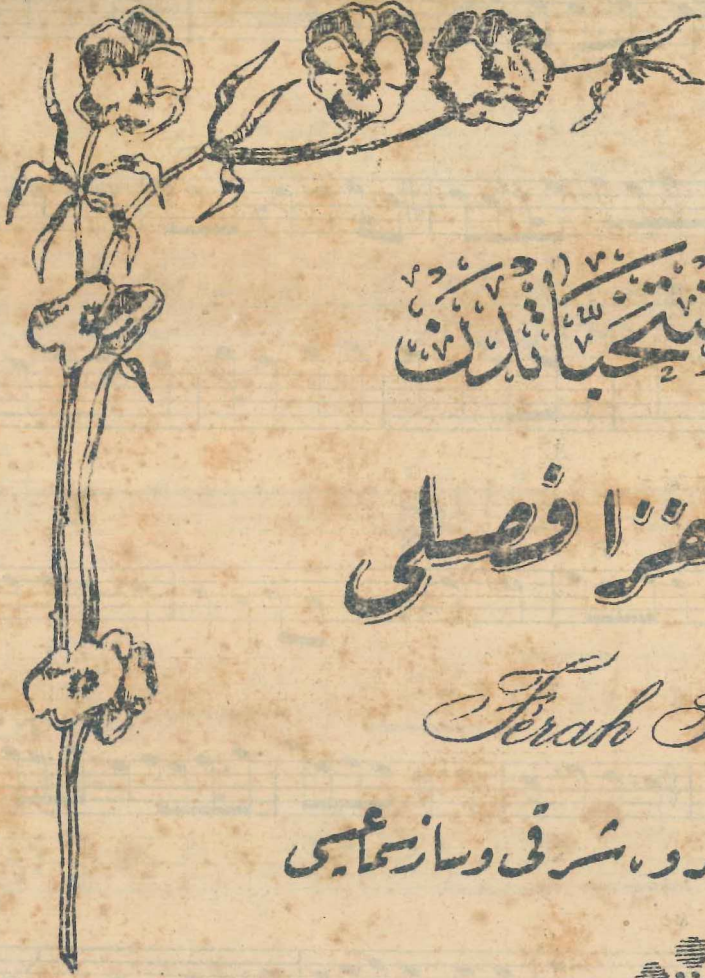 نتخباتدن
فزا فصلی
Férah
شرقی وسازسماعیسی